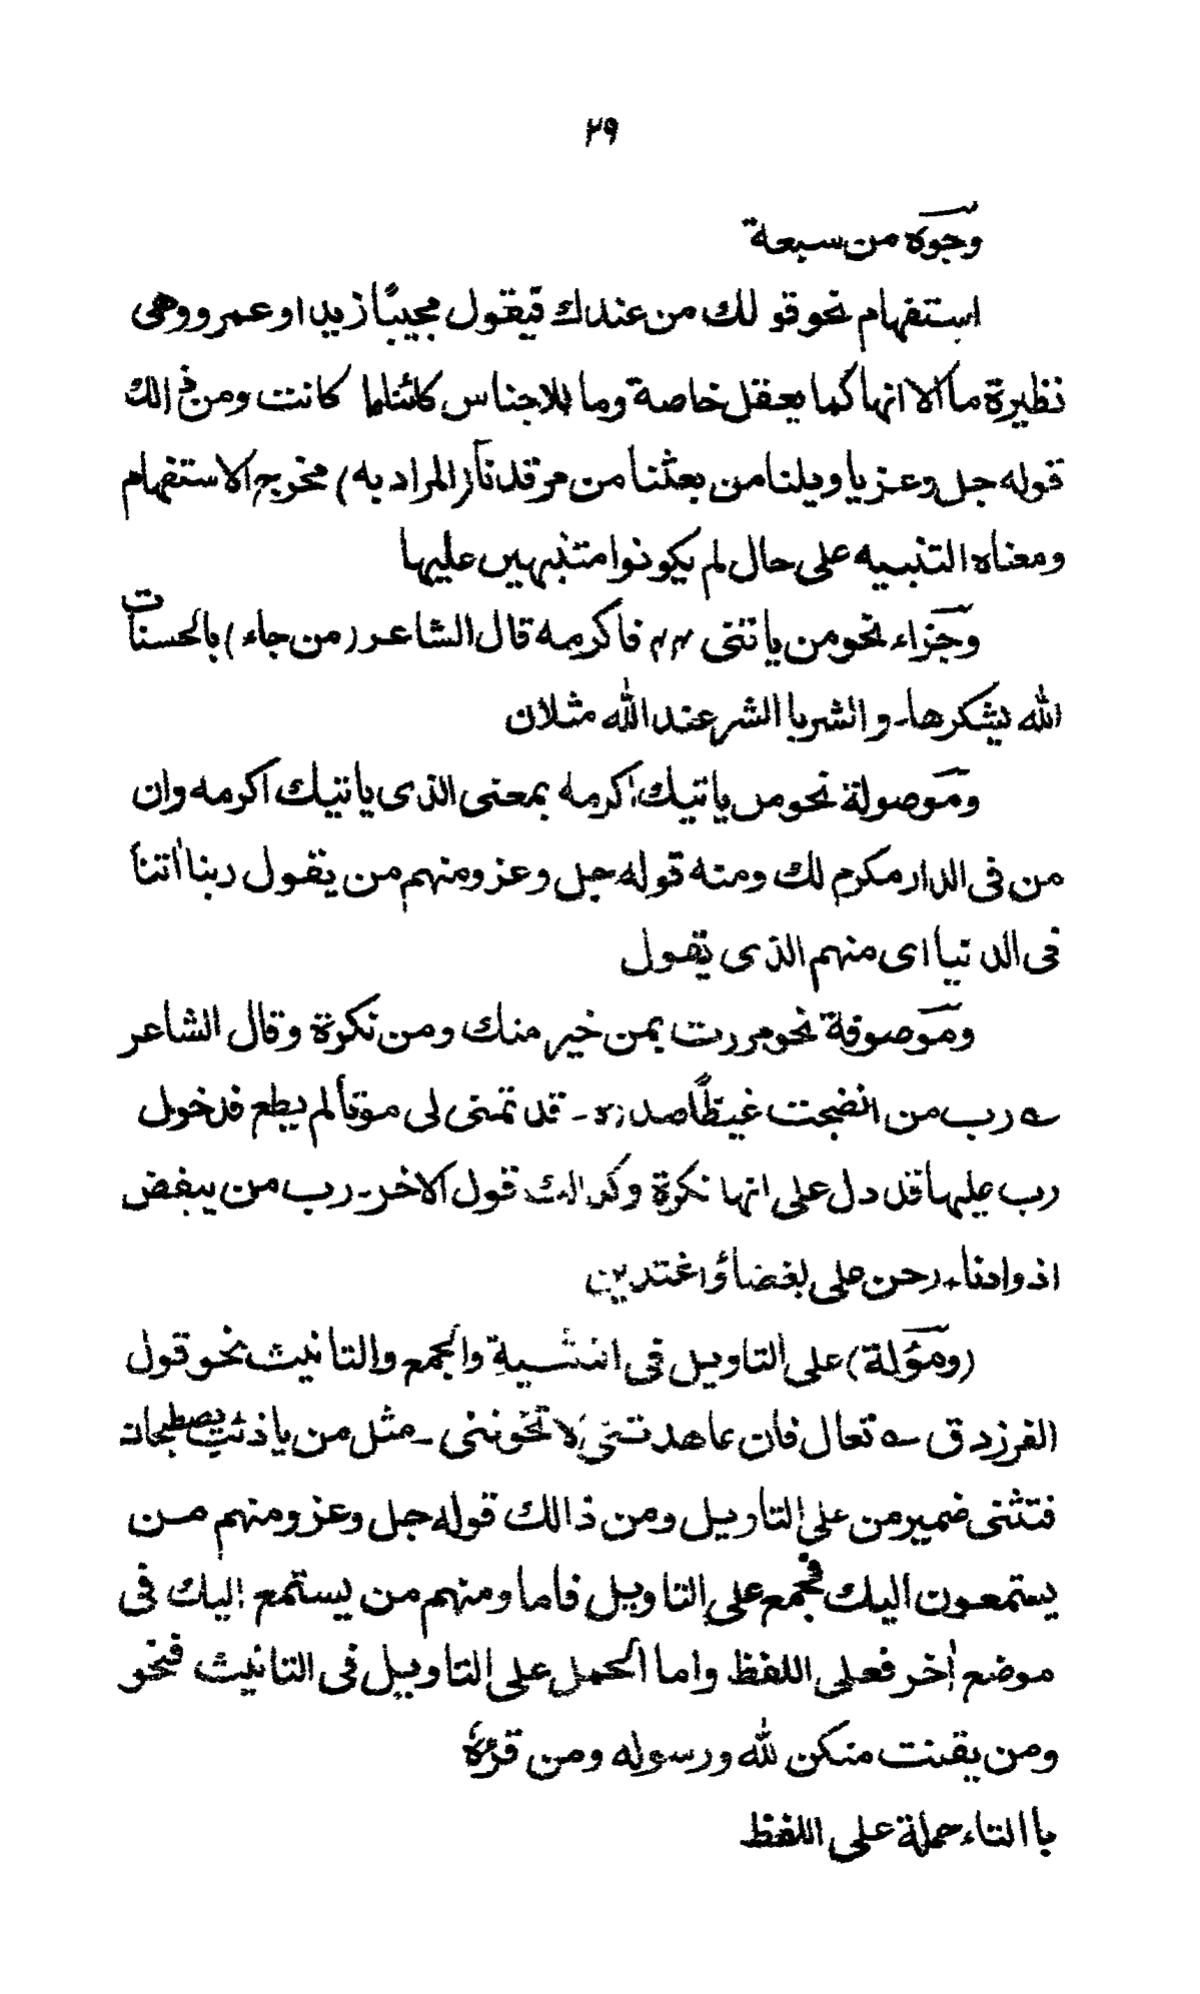 ۲۹
وجوه من سبعة
استفهام نحو قولك من عندك فيقول مجيبًا زيد او عمرو وهى
نظيرة ما الا انها كما يعقل خاصة وما للاجناس كائنا ما كانت ومن ذالك
قوله جل وعز يا ويلنا من بعثنا من مرقدنا (المراد به) مخرج الاستفهام
ومعناه التنبيه على حال لم يكونوا متنبهين عليها
وجزاء نحو من ياتنى فاكرمه قال الشاعر (من جاء) بالحسنات
الله يشكرها۔ والشر با الشر عند الله مثلان
وموصولة نحو من ياتيك اكرمه بمعنى الذى ياتيك اكرمه وان
من فى الدار مكرم لك ومنه قوله جل وعز ومنهم من يقول ربنا اٰتنا
فى الدنيا اى منهم الذى يقول
وموصوفة نحو مررت بمن خير منك ومن نكرة وقال الشاعر
؎ رب من انضجت غيظًا صدره ۔ قد تمنى لى موتا لم يطع فدخول
رب عليها قد دل على انها نكرة وكذالك قول الاخر۔ رب من يبغض
اذوادنا۔ رحن على بغضاؤ اغتدين
(ومؤلة) على التاويل فى التثنية والجمع والتانيث نحو قول
الفرزدق ؎ تعال فان عاهدتنى لا تخوننى ۔ مثل من يا ذئب يصطحبان
فتثنى ضمير من على التاويل ومن ذالك قوله جل وعز ومنهم من
يستمعون اليك فجمع على التاويل فاما ومنهم من يستمع اليك فى
موضع اٰخر فعلى اللفظ واما الحمل على التاويل فى التانيث فنحو
ومن يقنت منكن لله ورسوله ومن قرؤه
با التاء حملة على اللفظ